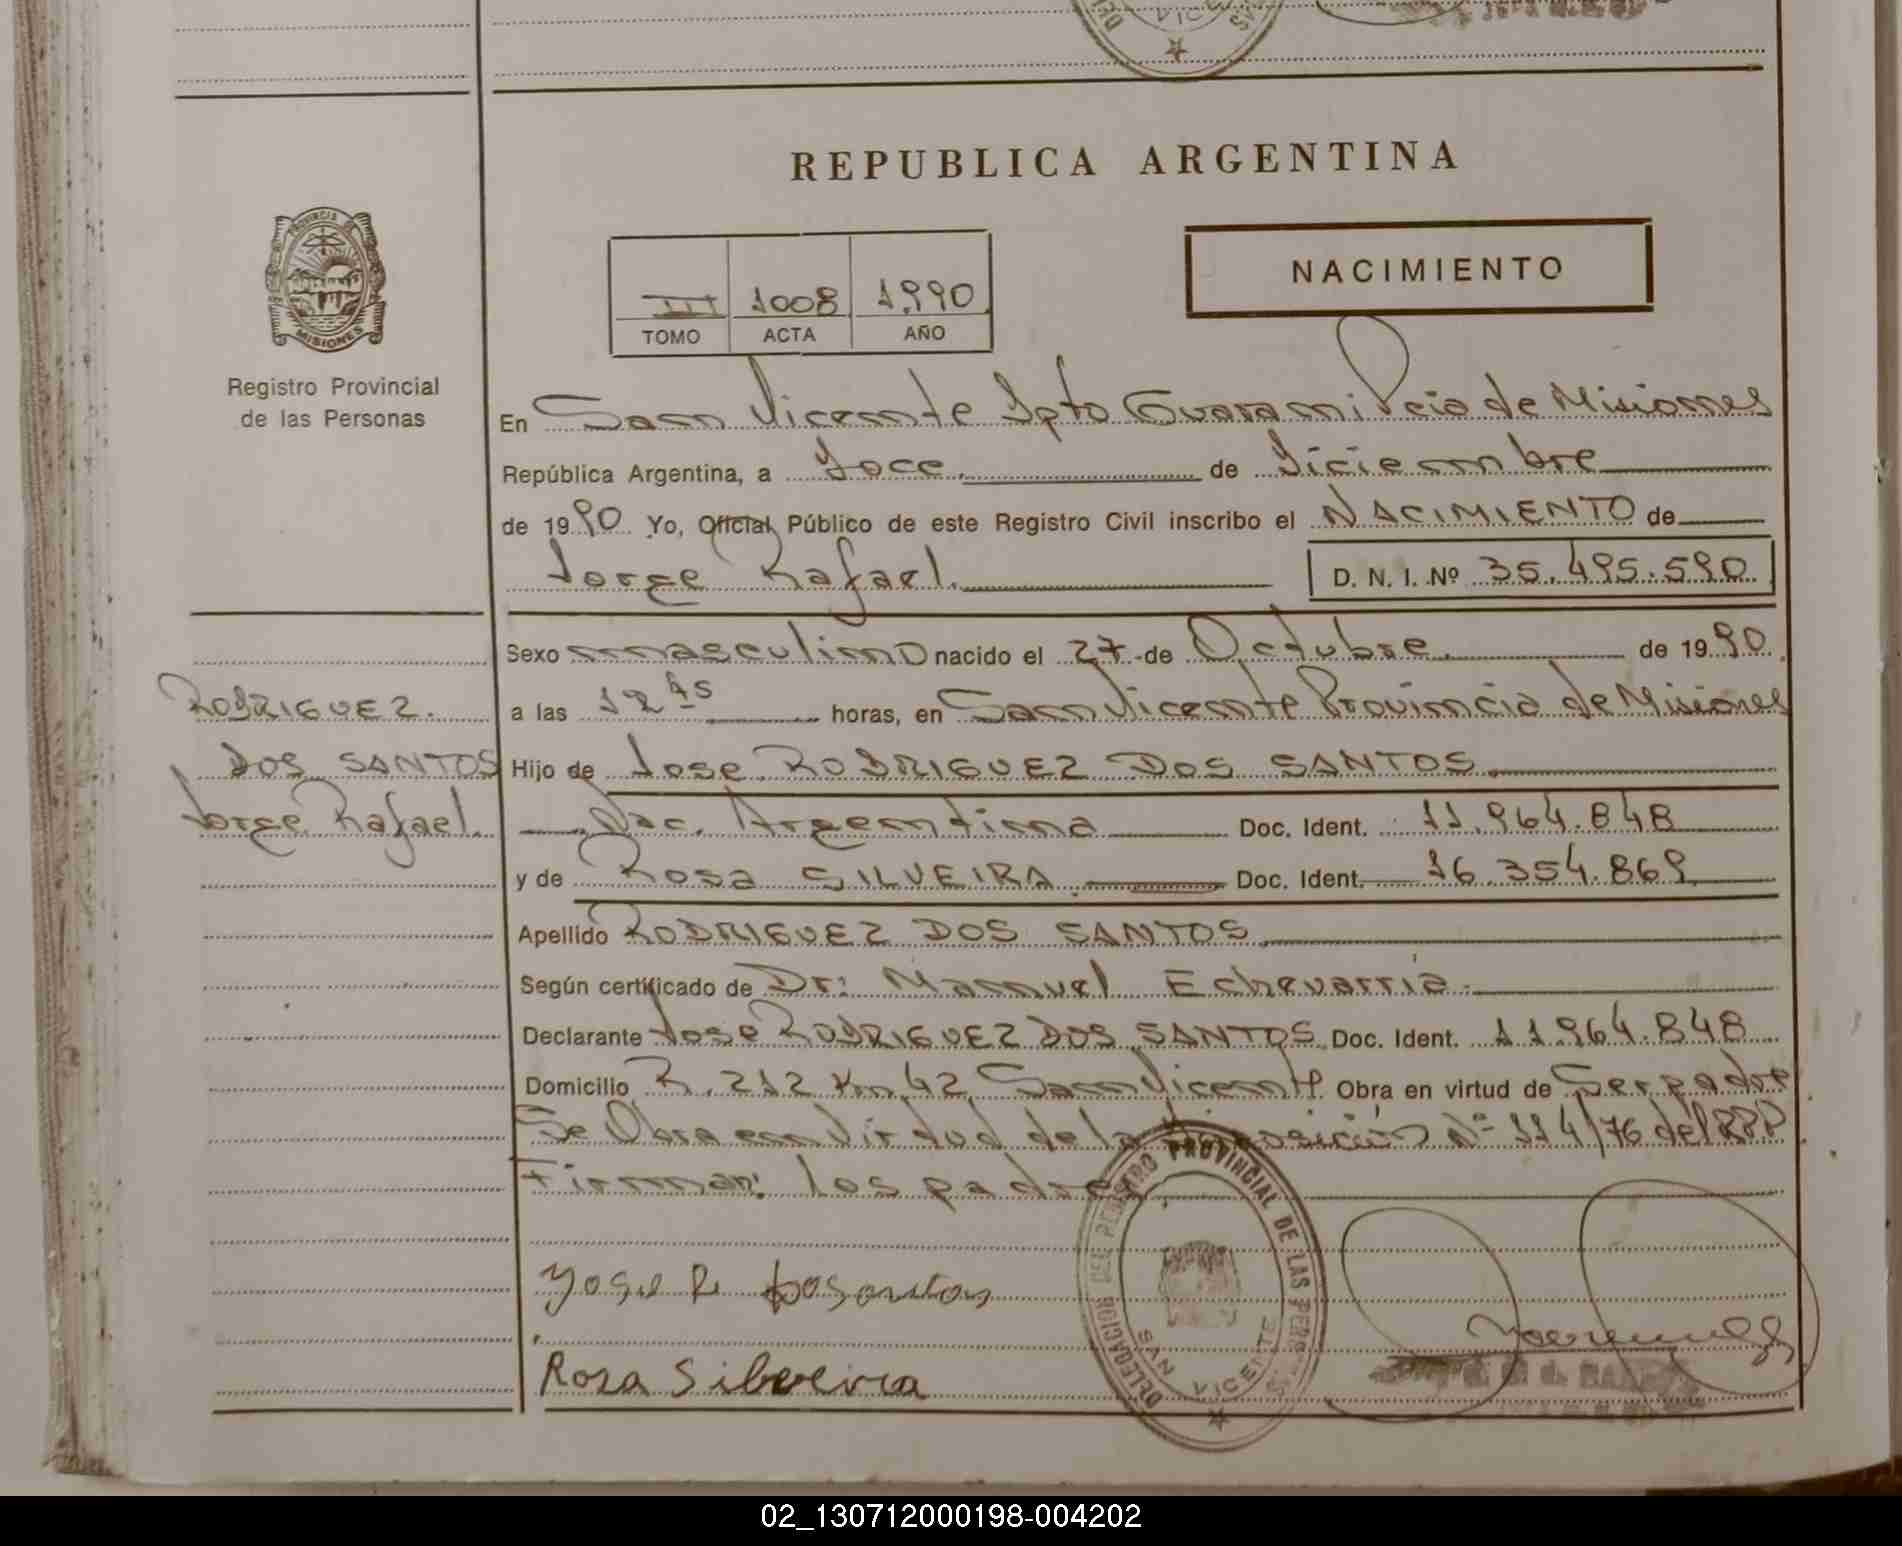 REPUBLICA ARGENTINA
PROVINCIA DE
MISIONES
Registro Provincial
de las Personas
III 1008 1.990
TOMO ACTA AÑO
NACIMIENTO
En San Vicente Dpto Guarani Pcia de Misiones
República Argentina, a Doce de Diciembre
de 1990 Yo, Oficial Público de este Registro Civil inscribo el NACIMIENTO de
Jorge Rafael. D. N. I. Nº 35.495.590
Sexo masculino nacido el 27 de Octubre de 1990
RODRIGUEZ.
DOS SANTOS
Jorge Rafael.
a las 12 hs horas, en San Vicente Provincia de Misiones
Hijo de Jose RODRIGUEZ DOS SANTOS
Nac. Argentina Doc. Ident. 11.964.848
y de Rosa SILVEIRA Doc. Ident. 16.354.869
Apellido RODRIGUEZ DOS SANTOS
Según certificado de Dr: Manuel Echevarria
Declarante Jose RODRIGUEZ DOS SANTOS Doc. Ident. 11.964.848
Domicilio R. 212 Km 42 San Vicente Obra en virtud de Ser padre
Se Obra en virtud de la Disposición Nº 114/76 del RPP
Firman: los padres
Jose R dosantos
DELEGACION DEL REGISTRO PROVINCIAL DE LAS PERS
SAN VICENTE
Rosa Silveira
02_130712000198-004202